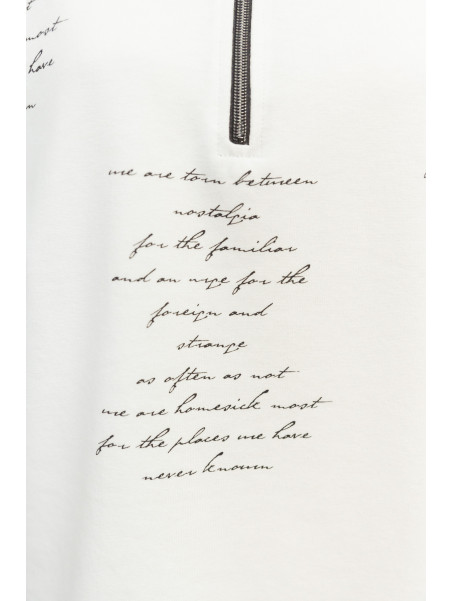 most
have
we are torn between
nostalgia
for the familiar
and an urge for the
foreign and
strange
as often as not
we are homesick most
for the places we have
never known